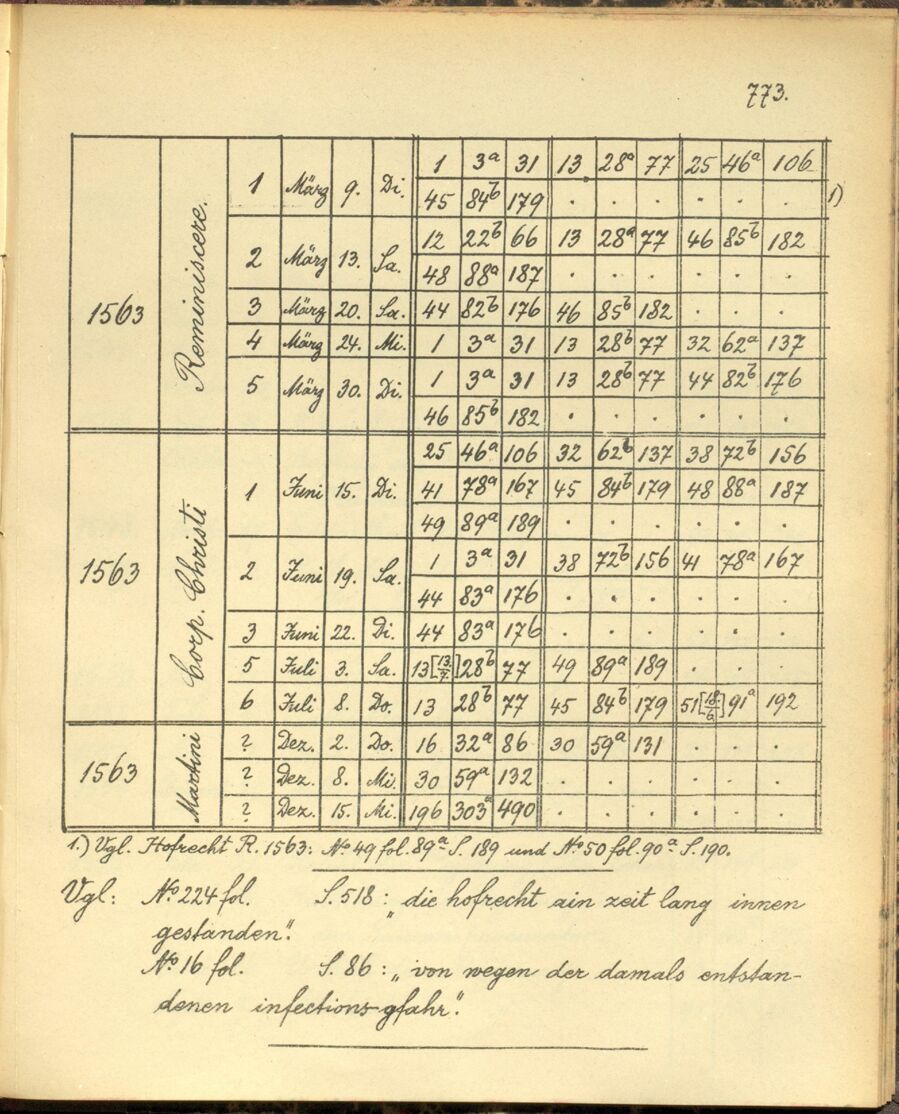 773.
1563 Reminiscere. 1 März 9. Di. 1 3a 31 13 28a 77 25 46a 106
45 84b 179 . . . . . . 1)
2 März 13. Sa. 12 22b 66 13 28a 77 46 85b 182
48 88a 187 . . . . . .
3 März 20. Sa. 44 82b 176 46 85b 182 . . .
4 März 24. Mi. 1 3a 31 13 28b 77 32 62a 137
5 März 30. Di. 1 3a 31 13 28b 77 44 82b 176
46 85b 182 . . . . . .
1563 Corp. Christi 1 Juni 15. Di. 25 46a 106 32 62b 137 38 72b 156
41 78a 167 45 84b 179 48 88a 187
49 89a 189 . . . . . .
2 Juni 19. Sa. 1 3a 31 38 72b 156 41 78a 167
44 83a 176 . . . . . .
3 Juni 22. Di. 44 83a 176 . . . . . .
5 Juli 3. Sa. 13[13/7.] 28b 77 49 89a 189 . . .
6 Juli 8. Do. 13 28b 77 45 84b 179 51[18/6.] 91a 192
1563 Martini ? Dez. 2. Do. 16 32a 86 30 59a 131 . . .
? Dez. 8. Mi. 30 59a 132 . . . . . .
? Dez. 15. Mi. 196 303a 490 . . . . . .
1.) Vgl. Hofrecht R. 1563: No 49 fol. 89a S. 189 und No 50 fol. 90a S. 190.
Vgl: No 224 fol. S. 518: „die hofrecht ain zeit lang innen
gestanden“.
No 16 fol. S. 86: „von wegen der damals entstan-
denen infections-gfahr“.